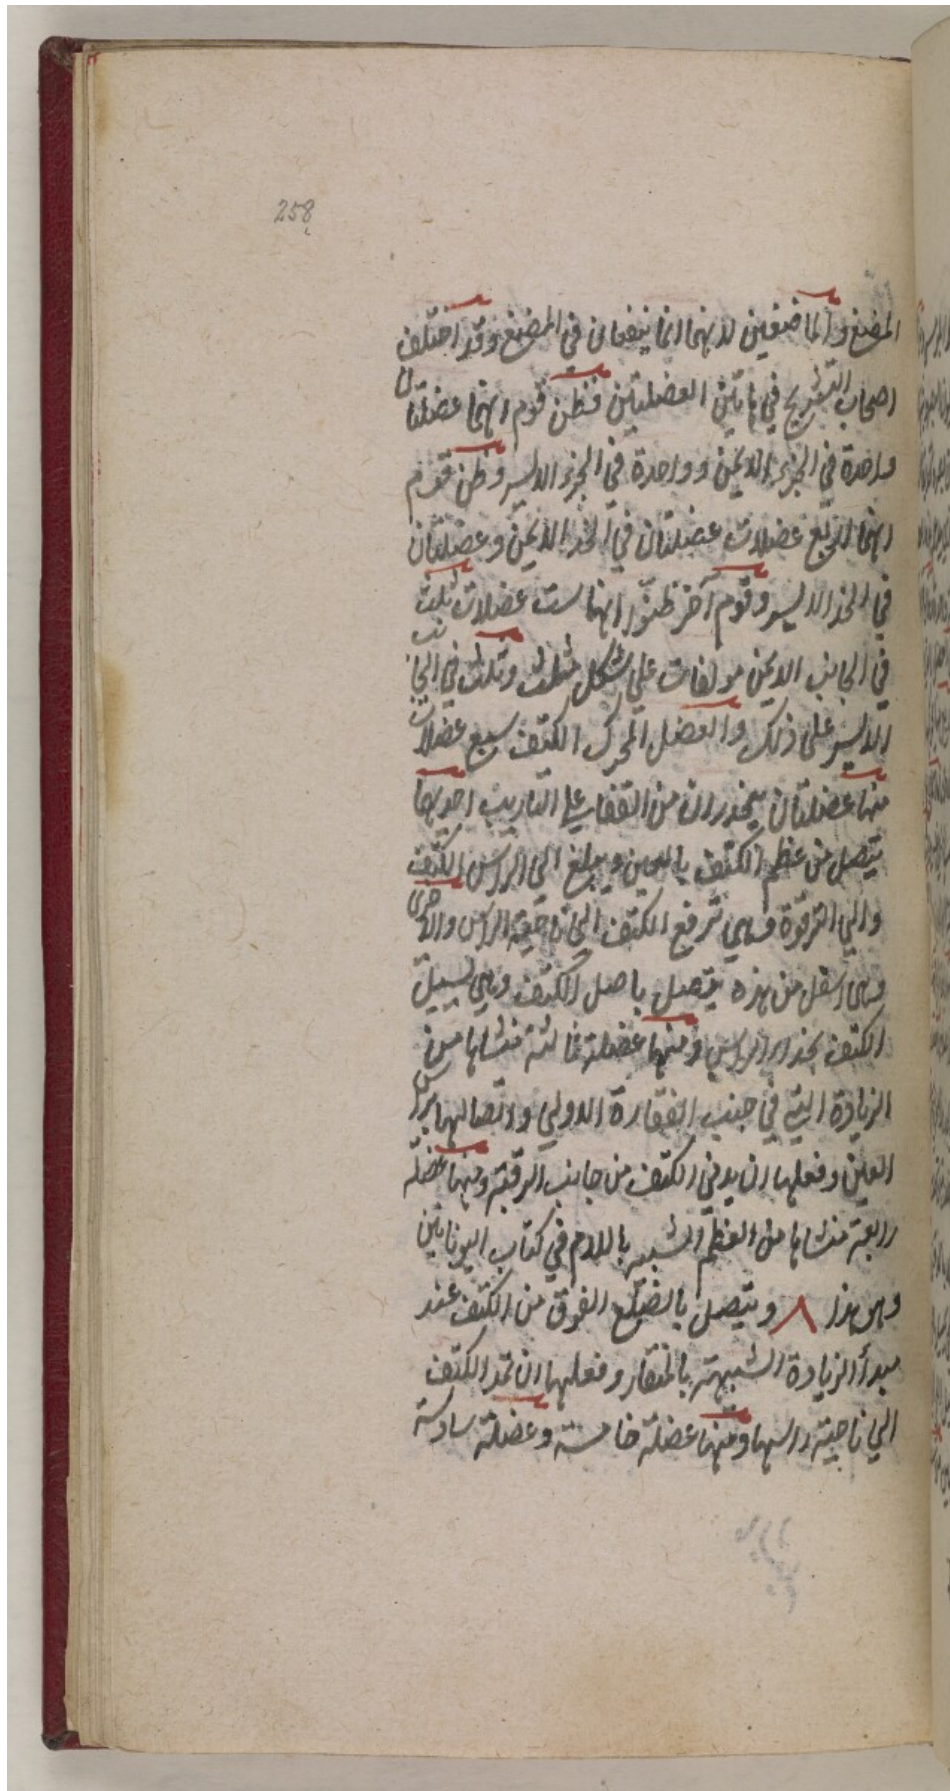 258
المضغ والماضغين لانهما انما ينفعان في المضغ وقد اختلف
اصحاب التشريح في هاتين العضلتين فظن قوم انهما عضلتان
واحدة في الجزء الايمن وواحدة في الجزء الايسر وظن قوم
انهما اربع عضلات عضلتان في الخد الايمن وعضلتان
في الخد الايسر وقوم آخر ظنوا انها ست عضلات ثلث
في الجانب الايمن مولفات علي شكل مثلث وثلث في الجانب
الايسر علي ذلك والعضل المحرك الكتف سبع عضلات
منها عضلتان ينحدران من القفا علي التاريب احديهما
يتصل من عظم الكتف بالعين ويبلغ الي الراس الكتف
والي الترقوة وهي ترفع الكتف الي ناحية الراس والاخري
وهي اسفل من هذه يتصل باصل الكتف وهي تسيل
الكتف بحذاء الراس ومنها عضلة ثالثة منشاها من
الزيادة التي في جنب الفقارة الاولي واتصالها براس
العين وفعلها ان يدني الكتف من جانب الرقبة ومنها عضلة
رابعة منشاها من العظم الشبيه باللام في كتاب اليونانين
وهو هذا ٨ ويتصل بالضلع الفوق من الكتف عند
مبدأ الزيادة الشبيهة بالمنقار وفعلها ان تمد الكتف
الي ناحية راسها ومنها عضلة خامسة وعضلة سادسة